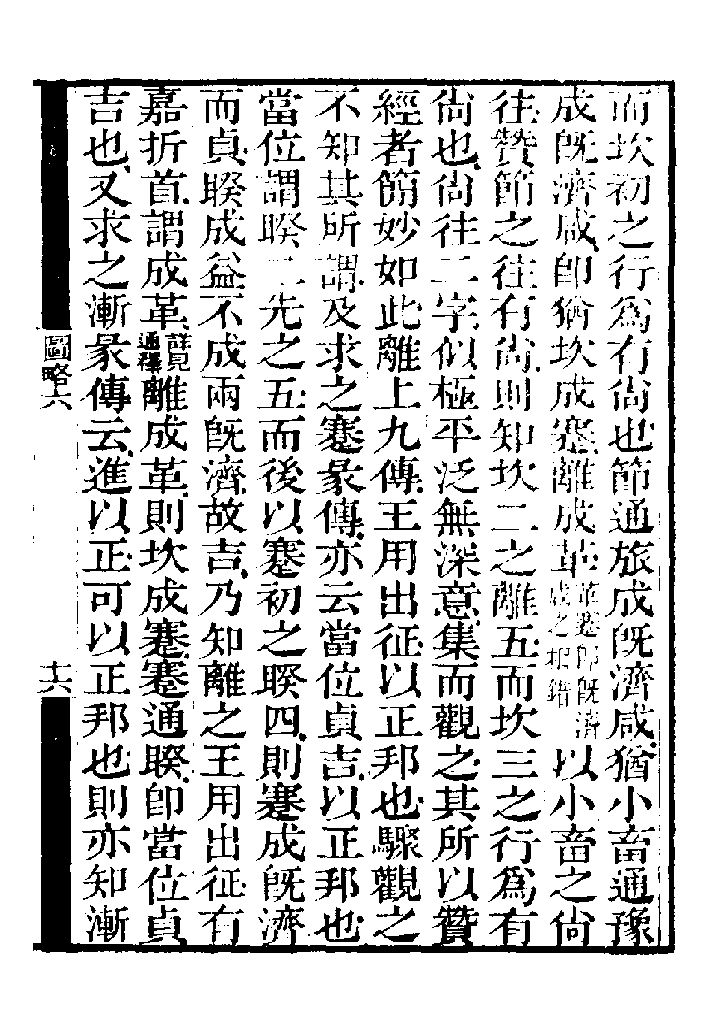 而坎初之行為有尚也節通旅成既濟咸猶小畜通豫
成既濟咸卽猶坎成蹇離成革革蹇卽既濟咸之相錯以小畜之尚
往贊節之往有尚則知坎二之離五而坎三之行為有
尚也尚往二字似極平泛無深意集而觀之其所以贊
經者簡妙如此離上九傳王用出征以正邦也驟觀之
不知其所謂及求之蹇彖傳亦云當位貞吉以正邦也
當位謂睽二先之五而後以蹇初之睽四則蹇成既濟
而貞睽成益不成兩既濟故吉乃知離之王用出征有
嘉折首謂成革詳見通釋離成革則坎成蹇蹇通睽卽當位貞
吉也又求之漸彖傳云進以正可以正邦也則亦知漸
圖略六
十六